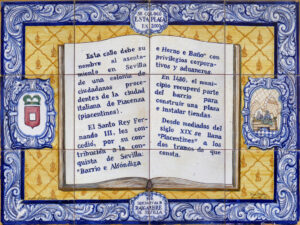 SE COLOCÓ
ESTA PLACA
EN 2003
Esta calle debe su
nombre al asenta-
miento en Sevilla
de una colonia de
ciudadanos proce-
dentes de la ciudad
italiana de Piacenza
(piacentinos).
El Santo Rey Fer-
nando III, les con-
cedió, por su con-
tribución a la con-
quista de Sevilla.
"Barrio e Alfóndiga
e Horno e Baño" con
privilegios corpora-
tivos y aduaneros.
En 1480, el muni-
cipio recuperó parte
del barrio para
construir una plaza
e instalar tiendas
Desde mediados del
siglo XIX se llama
"Placentines" a los
dos tramos de que
consta.
DE SEVILLA